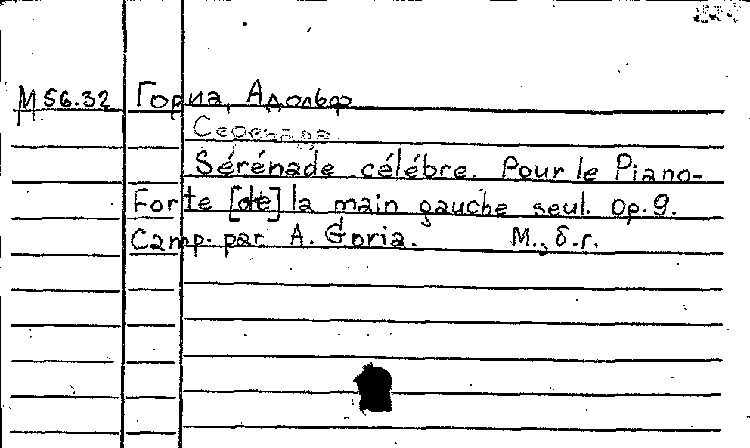 M 56.32 Гориа, Адольф
Серенада
Sérénade célébre. Pour le Piano-
Forte [de] la main gauche seul. Op. 9.
Comp. par A. Goria. М., б.г.